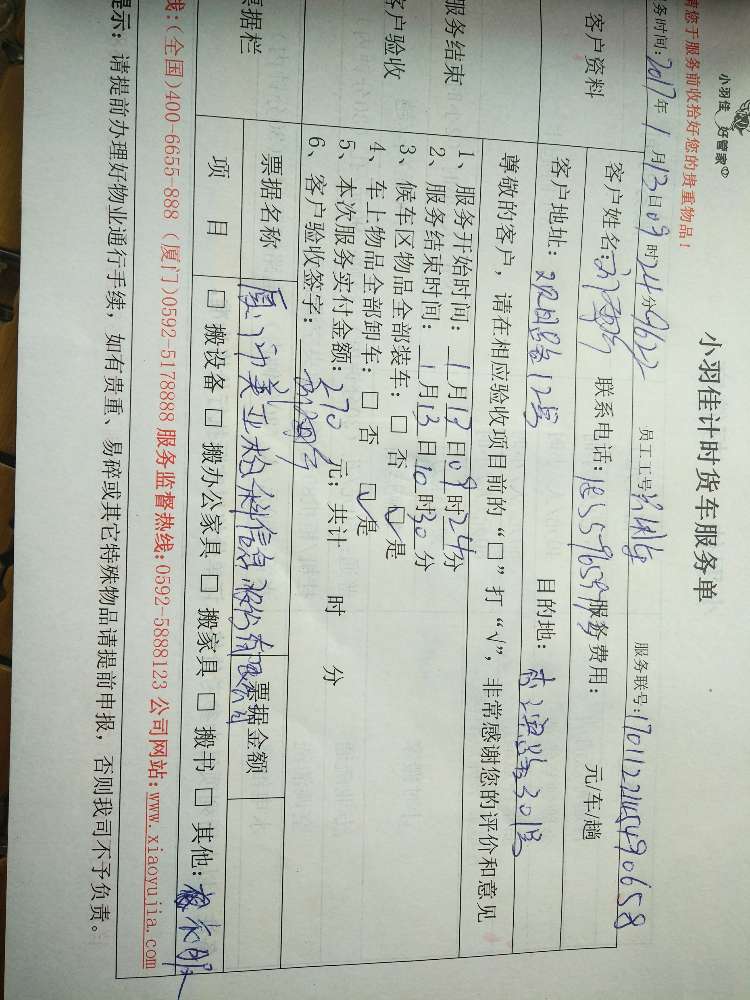 小羽佳 好管家
小羽佳计时货车服务单
请您于服务前收拾好您的贵重物品!
务时间: 2017年1月13日09时24分 9622 员工工号: 服务联号: 170112211454490658
客户资料
客户姓名: 联系电话: 服务费用: 元/车/趟
客户地址: 观日路12号 目的地: 301号
服务结束
客户验收
尊敬的客户, 请在相应验收项目前的“□”打“√”, 非常感谢您的评价和意见
1、服务开始时间: 1月13日09时24分
2、服务结束时间: 1月13日10时30分
3、候车区物品全部装车: □ 否 ☑是
4、车上物品全部卸车: □ 否 ☑是
5、本次服务实付金额: 270 元; 共计 时 分
6、客户验收签字:
票据栏
票据名称 厦门市美亚柏科信息股份有限公司 票据金额
项 目 □ 搬设备 □ 搬办公家具 □ 搬家具 □ 搬书 □ 其他:
线:(全国)400-6655-888 (厦门)0592-5178888 服务监督热线:0592-5888123 公司网站:www.xiaoyujia.com
提示: 请提前办理好物业通行手续, 如有贵重、易碎或其它特殊物品请提前申报, 否则我司不予负责。